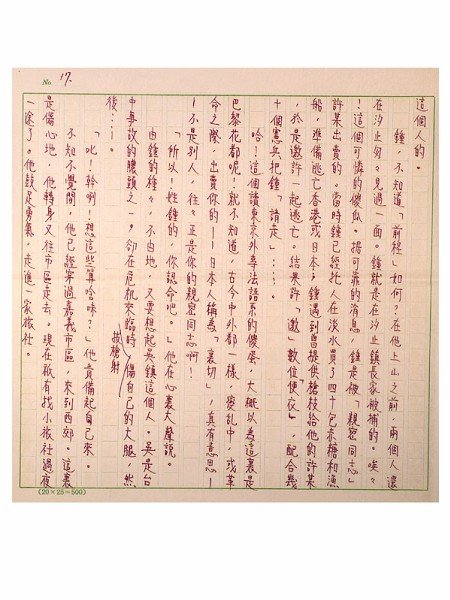 No. 17.
這個人的。
鍾,不知道「前程」如何?在他上山之前,兩個人還
在汐止匆匆見過一面。鍾就是在汐止鎮長家被捕的。唉
!這個可憐的傻瓜。據可靠的消息,鍾是被「親密同志」
許某出賣的。當時鍾已經托人在淡水買了四十包赤糖和漁
船,準備逃亡香港或日本;鍾遇到曾提供槍枝給他的許某
,於是邀許一起逃亡。結果許「邀」數位「便衣」,配合幾
十個憲兵把鍾「請走」……。
哈!這個讀東京外專法語系的傻蛋,大概以為這裏是
巴黎花都呢!就不知道,古今中外都一樣,變乱中,或革
命之際,出賣你的——日本人稱為「裏切」,真有意思—
—不是別人,往往正是你的親密同志啊!
「所以!姓鍾的,你認命吧。」他在心裏大聲說。
由鍾的種種,不由地,又要想起吳鎮這個人。吳是台
中事故的頭之一,卻在危机來臨時拔槍射傷自己的大腿,然
後……。
「!幹啊!想這些算啥味?」他責備起自己來。
不知不覺間,他已經穿過嘉義市區,來到西郊。這裏
是傷心地,他轉身又往市區走去。現在祇有找小旅社過夜
一途了。他鼓足勇氣,走進一家旅社。
(20×25=500)